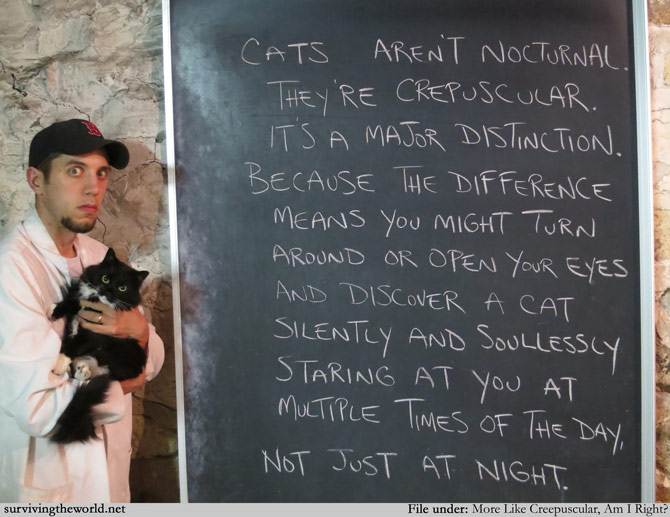 CATS AREN'T NOCTURNAL.
THEY'RE CREPUSCULAR.
IT'S A MAJOR DISTINCTION.
BECAUSE THE DIFFERENCE
MEANS YOU MIGHT TURN
AROUND OR OPEN YOUR EYES
AND DISCOVER A CAT
SILENTLY AND SOULLESSLY
STARING AT YOU AT
MULTIPLE TIMES OF THE DAY,
NOT JUST AT NIGHT.
survivingtheworld.net File under: More Like Creepuscular, Am I Right?